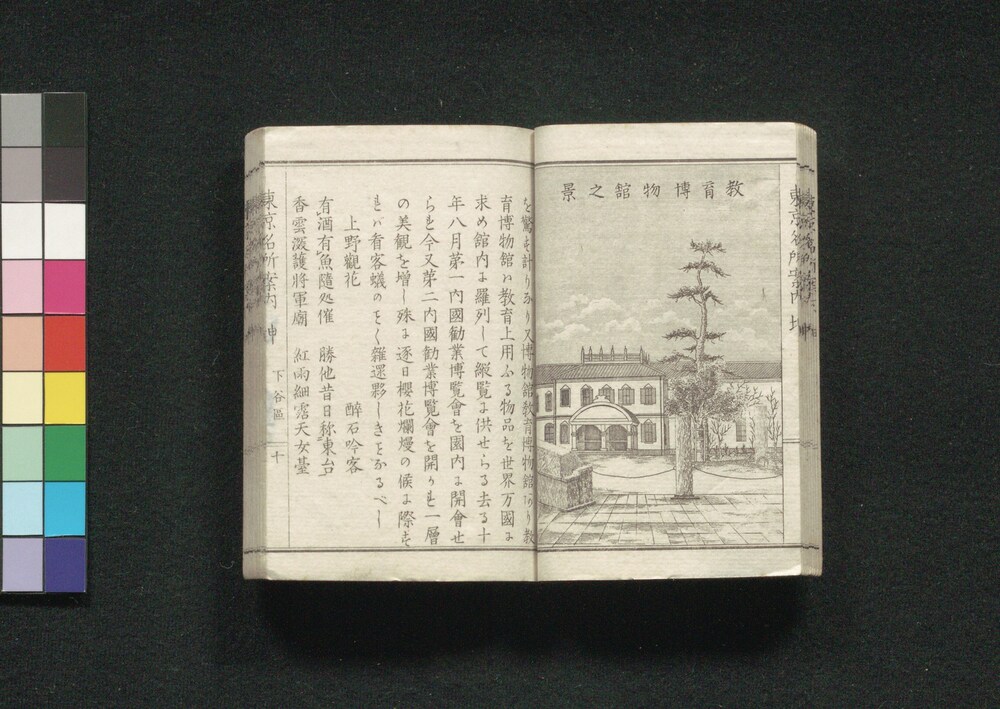 教育博物館之景
を驚す計りなり又博物館教育博物館あり教
育博物館ハ教育上用ふる物品を世界万國に
求め館内に羅列して縦覧に供せらる去る十
年八月第一内國勧業博覧會を園内に開會せ
られ今又第二内國勧業博覧會を開かれ一層
の美観を増し殊に逐日櫻花爛熳の候に際す
れバ看客蟻のそく雑遝夥しきことなるべし
上野觀花 醉石吟客
有酒有魚隨処催 勝他昔日称東台
香雲深護將軍廟 紅雨細霑天女臺
東京名所案内 坤
下谷區
十